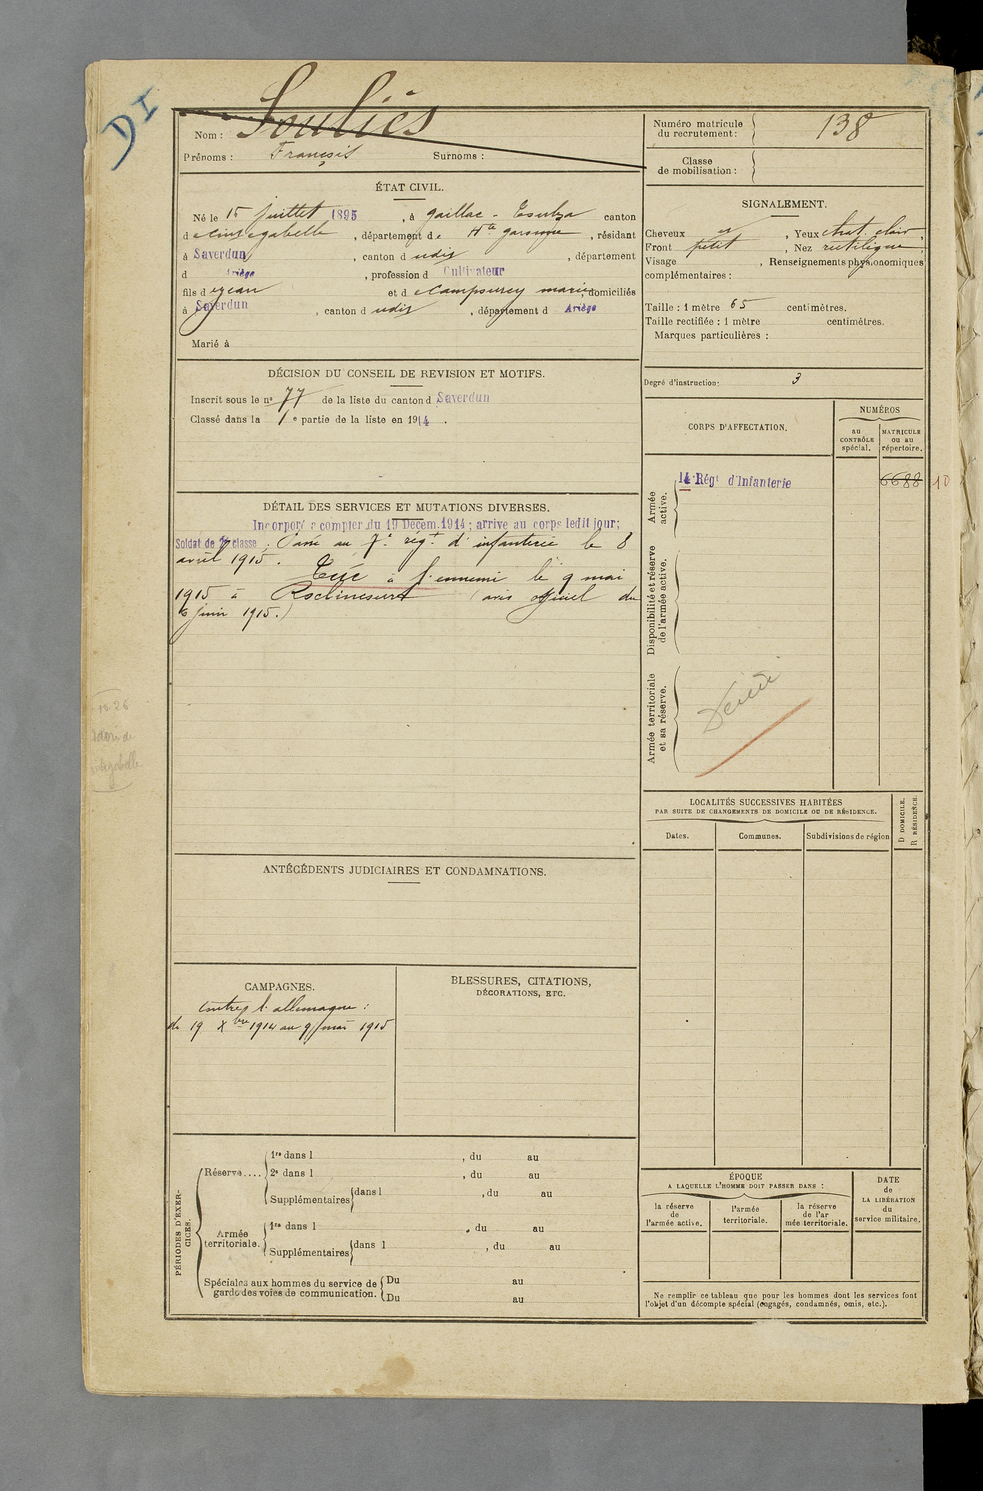 DI
Nom : Souliés
Prénoms : François Surnoms :
Numéro matricule du recrutement : 138
Classe de mobilisation :
ÉTAT CIVIL.
Né le 15 juillet 1895, à Gaillac-Toulza canton
de Cintegabelle, département de Hte Garonne, résidant
à Saverdun, canton d udit, département
d Ariège, profession d Cultivateur
fils d e Jean et d e marie, domiciliés
à Saverdun, canton d udit, département d Ariège
Marié à
SIGNALEMENT.
Cheveux , Yeux chat. clair,
Front petit, Nez rectiligne,
Visage , Renseignements physionomiques
complémentaires :
Taille : 1 mètre 65 centimètres.
Taille rectifiée : 1 mètre centimètres.
Marques particulières :
Degré d'instruction : 3
DÉCISION DU CONSEIL DE REVISION ET MOTIFS.
Inscrit sous le nº 77 de la liste du canton d Saverdun
Classé dans la 1e partie de la liste en 1914.
DÉTAIL DES SERVICES ET MUTATIONS DIVERSES.
Incorporé à compter du 19 Décem. 1914 ; arrivé au corps ledit jour ;
Soldat de 2e classe ; Passé au 7e régt d'infanterie le 8
avril 1915. Tué à l'ennemi le 9 mai
1915 à Roclincourt (avis officiel du
6 juin 1915.)
CORPS D'AFFECTATION.
NUMÉROS
au CONTRÔLE spécial.
MATRICULE ou au répertoire.
Armée active.
14 Régt d'Infanterie
6688
10
Disponibilité et réserve de l'armée active.
Armée territoriale et sa réserve.
LOCALITÉS SUCCESSIVES HABITÉES
PAR SUITE DE CHANGEMENTS DE DOMICILE OU DE RÉSIDENCE.
Dates.
Communes.
Subdivisions de région
D DOMICILE.
R RÉSIDENCE.
ANTÉCÉDENTS JUDICIAIRES ET CONDAMNATIONS.
CAMPAGNES.
Contre l'allemagne :
du 19 Xbre 1914 au 9 mai 1915
BLESSURES, CITATIONS,
DÉCORATIONS, ETC.
PÉRIODES D'EXERCICES.
Réserve....
1re dans l , du au
2e dans l , du au
Supplémentaires dans l , du au
Armée territoriale.
1re dans l , du au
Supplémentaires dans l , du au
Spéciales aux hommes du service de
garde des voies de communication.
Du au
Du au
ÉPOQUE
A LAQUELLE L'HOMME DOIT PASSER DANS :
la réserve de l'armée active.
l'armée territoriale.
la réserve de l'armée territoriale.
DATE de LA LIBÉRATION du service militaire.
Ne remplir ce tableau que pour les hommes dont les services font
l'objet d'un décompte spécial (engagés, condamnés, omis, etc.).